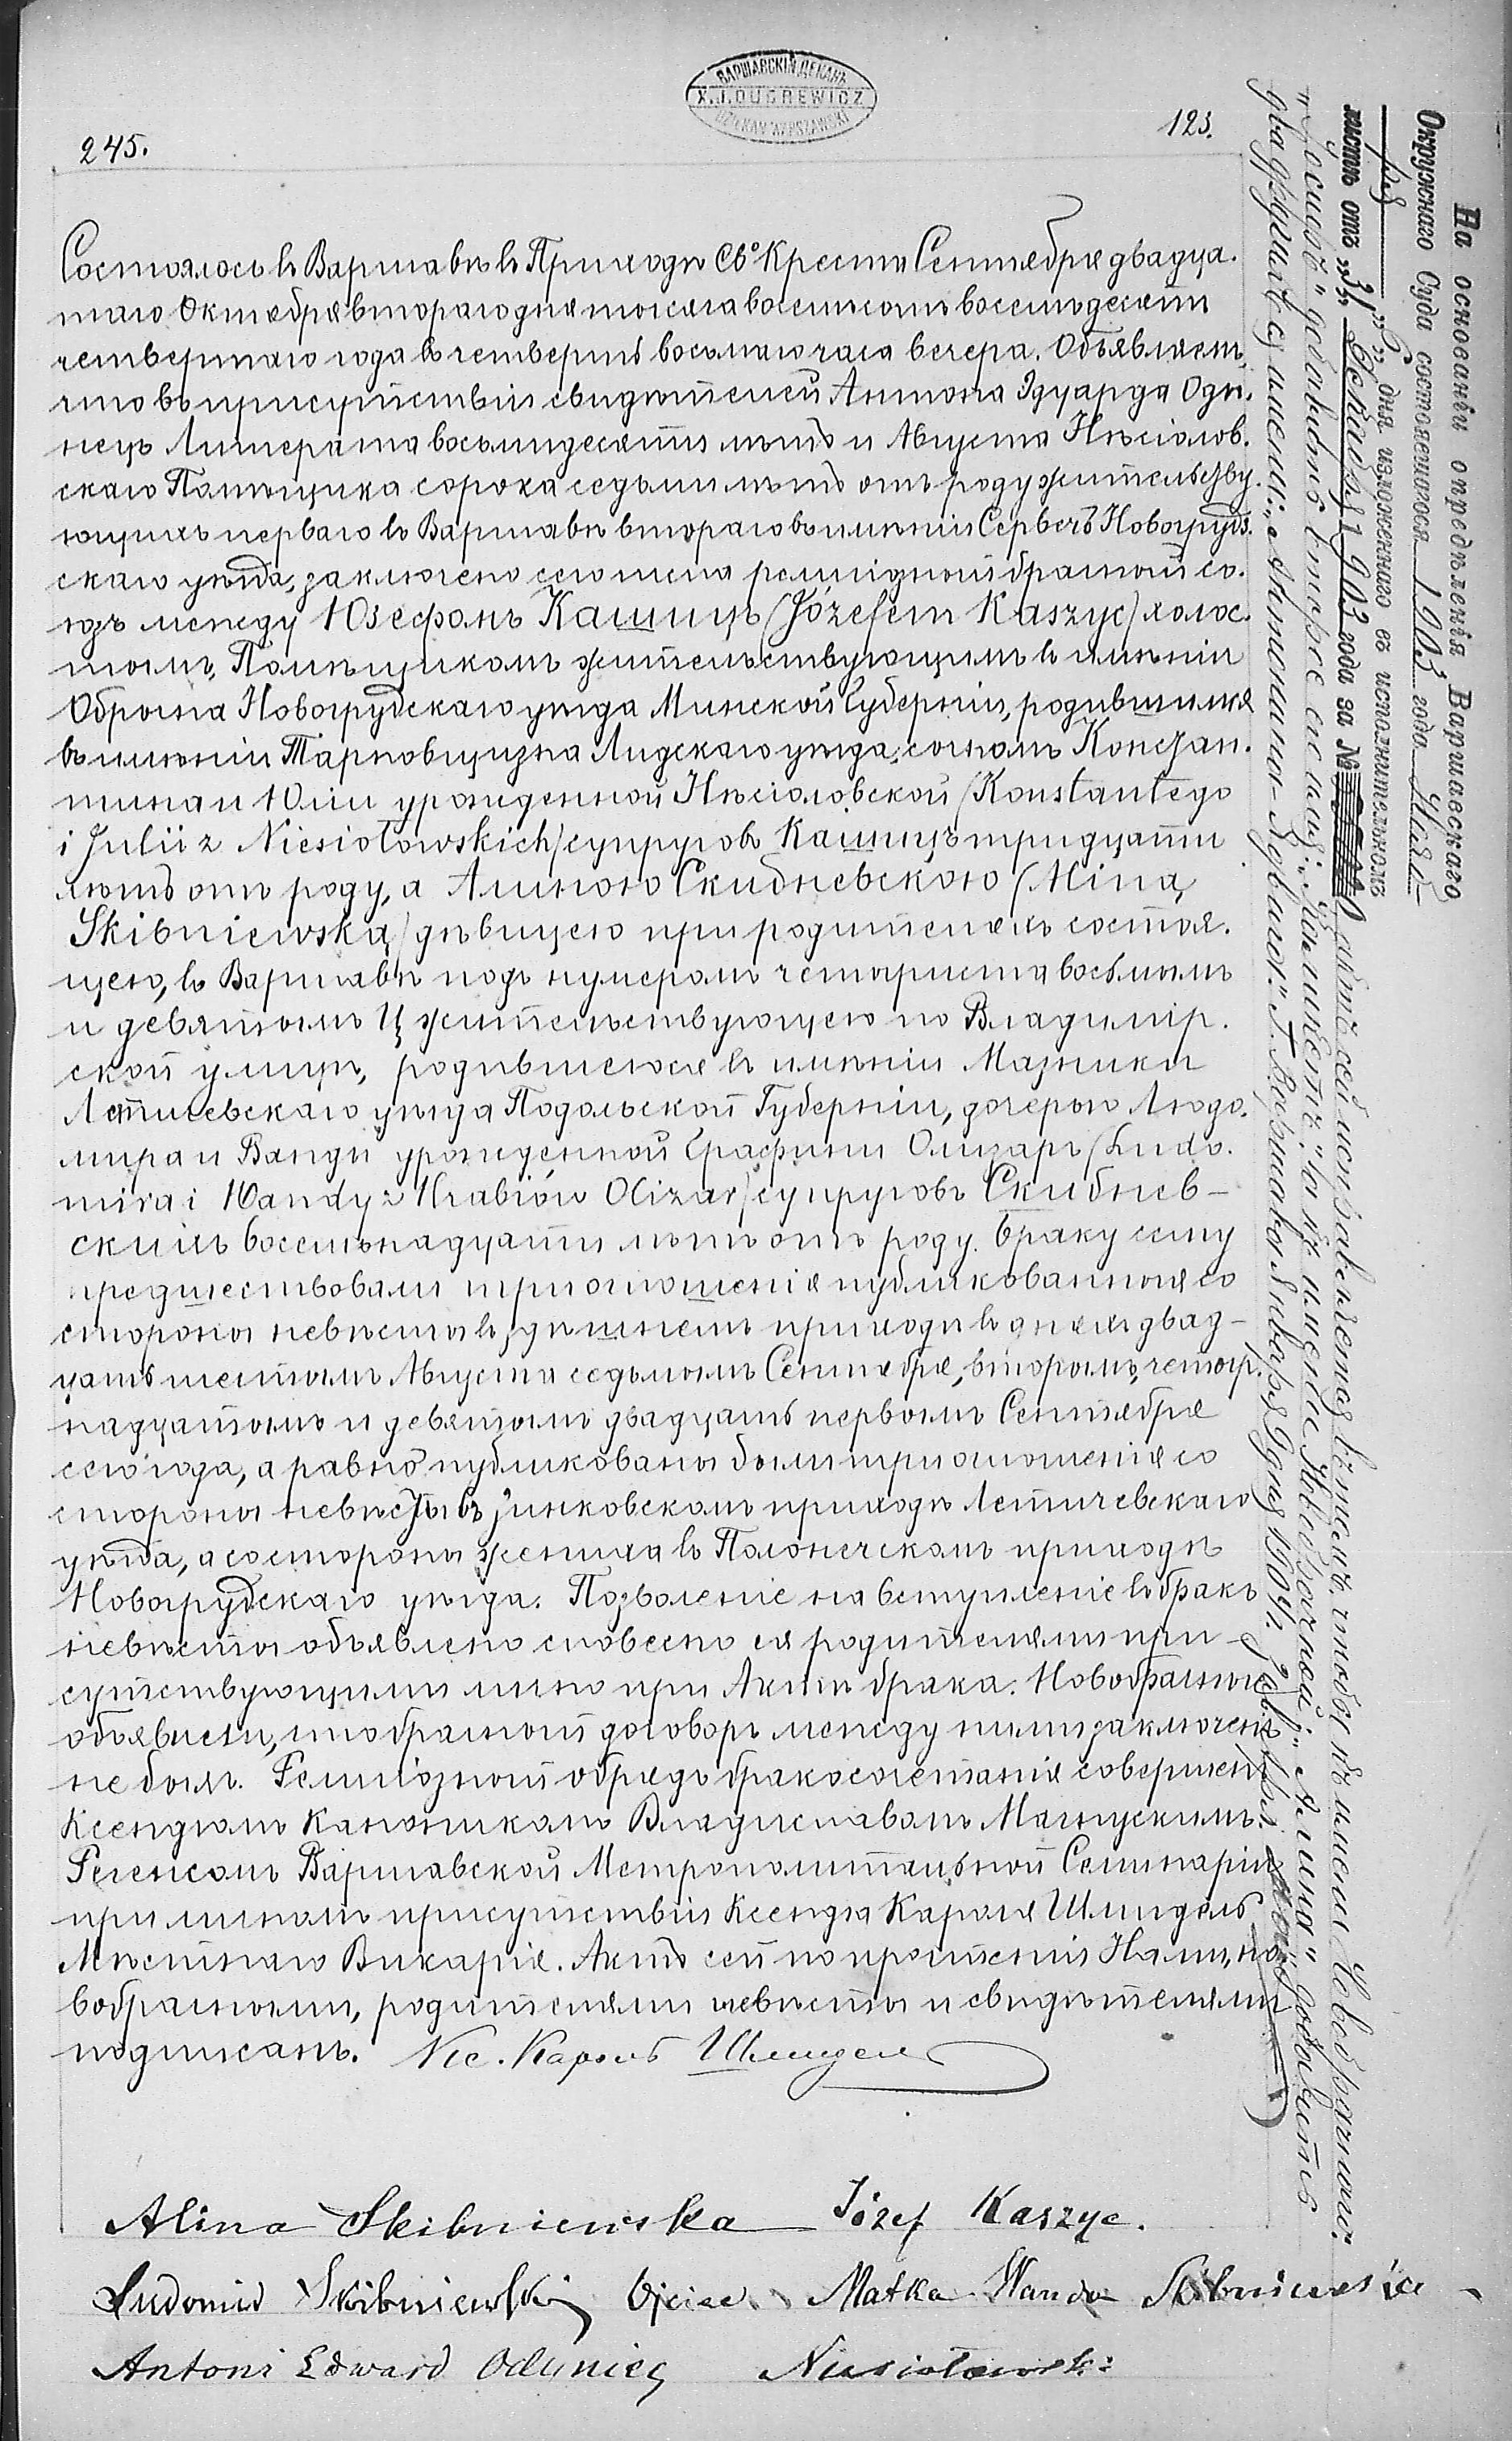 ВАРШАВСКІЙ ДЕКАНЪ
X. J. DUDREWICZ
DZIEKAN WARSZAWSKI
245.
123.
Состоялось въ Варшавѣ въ Приходѣ Свº Креста Сентября двадца-
таго Октября втораго дня тысяча восемьсотъ восемьдесятъ
четвертаго года въ четвергъ восьмаго часа вечера. Объявляемъ,
что въ присутствіи свидѣтелей Антона Эдуарда Оды-
нецъ Литерата восьмидесяти лѣтъ и Августа Нѣсіолов-
скаго Помѣщика сорока седьми лѣтъ отъ роду жительству-
ющихъ перваго въ Варшавѣ втораго въ имѣніи Сервечъ Новогруд-
скаго уѣзда, заключено сего числа религіозный брачный со-
юзъ между Юзефомъ Кашицъ (Józefem Kaszyc) холос-
тымъ, Помѣщикомъ жительствующимъ въ имѣніи
Обрына Новогрудскаго уѣзда Минской Губерніи, родившимся
въ имѣніи Тарновщизна Лидскаго уѣзда, сыномъ Констан-
тина и Юліи урожденной Нѣсіоловской (Konstantego
i Julii z Niesiołowskich) супруговъ Кашицъ тридцати
лѣтъ отъ роду, а Алиною Скибневскою (Aliną
Skibniewską) дѣвицею при родителяхъ состоя-
щею, въ Варшавѣ подъ нумеромъ четыриста восьмымъ
и девятымъ Ц жительствующею по Владимір-
ской улицѣ, родившеюся въ имѣніи Мазники
Летичевскаго уѣзда Подольской Губерніи, дочерью Людо-
мира и Ванды урожденной Графини Олизаръ (Ludo-
mira i Wandy z Hrabiów Olizar) супруговъ Скибнев-
скихъ восемьнадцати лѣтъ отъ роду. Браку сему
предшествовали три оглашенія публикованныя со
стороны невѣсты въ здѣшнемъ приходѣ въ дняхъ двад-
цать шестымъ Августа седьмымъ Сентября, вторымъ, четыр-
надцатымъ и девятымъ двадцать первымъ Сентября
сего года, а равно публикованы были три оглашенія со
стороны невѣсты въ Зинковскомъ приходѣ Летичевскаго
уѣзда, а со стороны жениха въ Полонечскомъ приходѣ
Новогрудскаго уѣзда. Позволеніе на вступленіе въ бракъ
невѣсты объявлено словесно ея родителями при-
сутствующими лично при Актѣ брака. Новобрачные
объявили, что брачный договоръ между ними заключенъ
не былъ. Религіозный обрядъ бракосочетанія совершенъ
Ксендзомъ Каноникомъ Владиславомъ
Регенсомъ Варшавской Метрополитальной Семинаріи
при личномъ присутствіи Ксендза Кароля Шмидель
Мѣстнаго Викарія. Актъ сей по прочтеніи Нами, но-
вобрачными, родителями невѣсты и свидѣтелями
подписанъ. Кс. Кароль Шмидель
Alina Skibniewska Józef Kaszyc.
Ludomir Skibniewski Ojciec Matka Wanda Skibniewska
Antoni Edward Odyniec Niesiołowski
На основаніи опредѣленія Варшавскаго
Окружнаго Суда состоявшагося 1903 года Мая
дня изложеннаго въ исполнительномъ
листѣ отъ „31" Декабря 1903 года за №
актъ сей исправляется въ томъ, чтобы къ имени Новобрачнаго:
„Іосифъ" добавить второе его имя: къ имени Новобрачной: „Алина" добавить
два другихъ ея имени: „Антонина-Ядвига". Г. Варшава Января дня 1904 г.